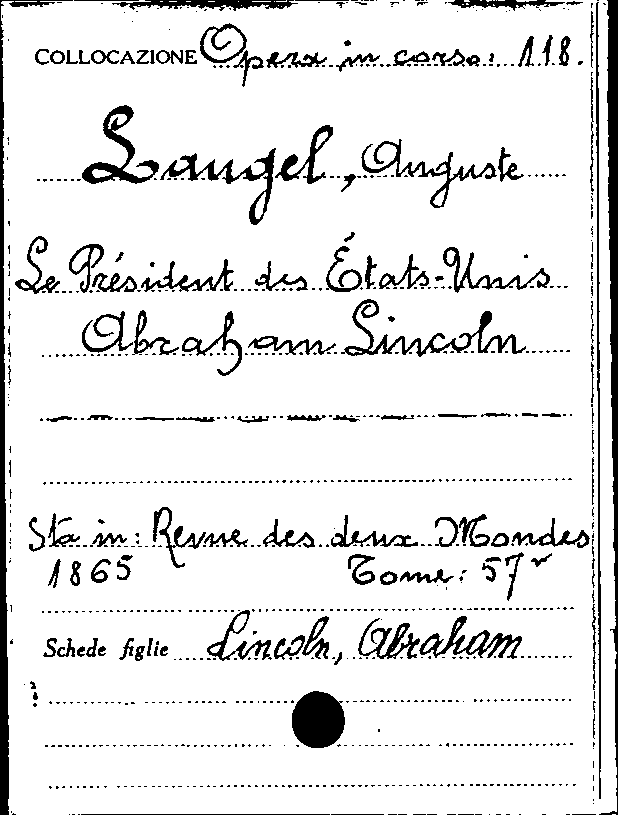 COLLOCAZIONE Opera in corso: 118.
Laugel, Auguste
Le Président des États-Unis
Abraham Lincoln
Sta in: Revue des deux Mondes
1865 Tome: 57
Schede figlie Lincoln, Abraham